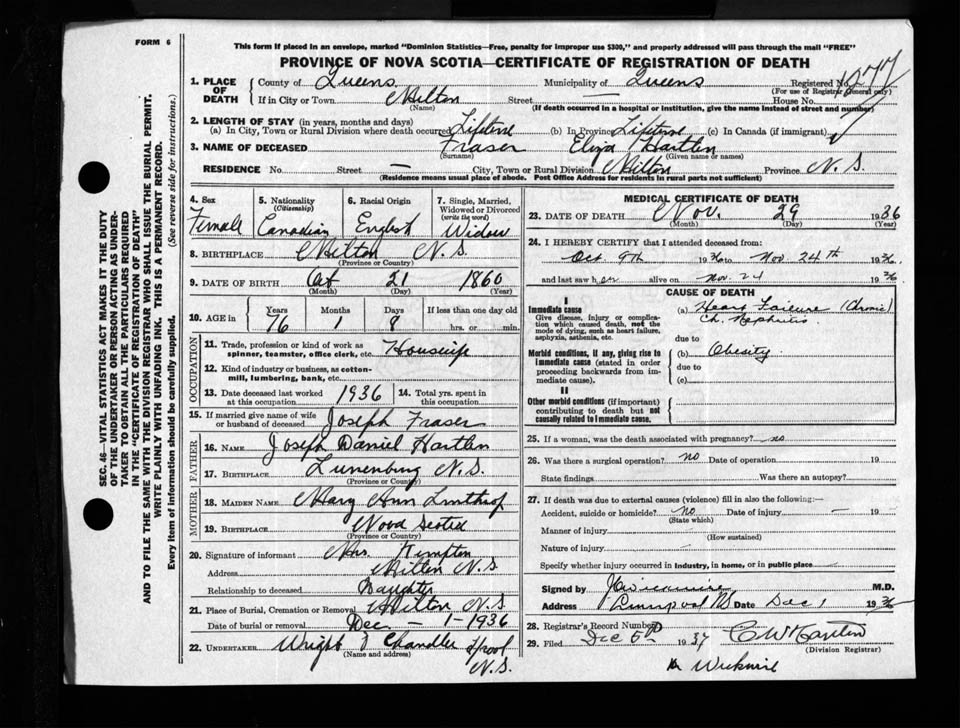 FORM 6
This form if placed in an envelope, marked "Dominion Statistics—Free, penalty for improper use $300," and properly addressed will pass through the mail "FREE"
PROVINCE OF NOVA SCOTIA—CERTIFICATE OF REGISTRATION OF DEATH
1. PLACE OF DEATH County of Queens Municipality of Queens Registered No.
(For use of Registrar General only)
If in City or Town Milton Street — House No.
(Name) (If death occurred in a hospital or institution, give the name instead of street and number)
2. LENGTH OF STAY (in years, months and days)
(a) In City, Town or Rural Division where death occurred Lifetime (b) In Province Lifetime (c) In Canada (if immigrant)
3. NAME OF DECEASED Fraser Eliza Hartlen
(Surname) (Given name or names)
RESIDENCE No. Street — City, Town or Rural Division Milton Province N.S.
(Residence means usual place of abode. Post Office Address for residents in rural parts not sufficient)
4. Sex 5. Nationality 6. Racial Origin 7. Single, Married, Widowed or Divorced
(Citizenship) (write the word)
Female Canadian English Widow
8. BIRTHPLACE Milton N.S.
(Province or Country)
9. DATE OF BIRTH Oct 21 1860
(Month) (Day) (Year)
10. AGE in Years Months Days If less than one day old
76 1 8 hrs. or min.
OCCUPATION
11. Trade, profession or kind of work as spinner, teamster, office clerk, etc. Housewife
12. Kind of industry or business, as cotton-mill, lumbering, bank, etc.
13. Date deceased last worked at this occupation 1936 14. Total yrs. spent in this occupation
15. If married give name of wife or husband of deceased Joseph Fraser
FATHER
16. NAME Joseph Daniel Hartlen
17. BIRTHPLACE Lunenburg N.S.
(Province or Country)
MOTHER
18. MAIDEN NAME Mary Ann
19. BIRTHPLACE Nova Scotia
(Province or Country)
20. Signature of informant Mrs. Kempton
Address Milton N.S.
Relationship to deceased Daughter
21. Place of Burial, Cremation or Removal Milton N.S.
Date of burial or removal Dec — 1 - 1936
22. UNDERTAKER Wright & Chandler L'pool N.S.
(Name and address)
MEDICAL CERTIFICATE OF DEATH
23. DATE OF DEATH Nov. 29 1936
(Month) (Day) (Year)
24. I HEREBY CERTIFY that I attended deceased from:
Oct. 9th 1936 to Nov. 24th 1936
and last saw her alive on Nov. 24 1936
CAUSE OF DEATH
I
Immediate cause
give disease, injury or complication which caused death, not the mode of dying, such as heart failure, asphyxia, asthenia, etc.
(a) Heart Failure (Chronic)
Ch. Nephritis
due to
Morbid conditions, if any, giving rise to immediate cause (stated in order proceeding backwards from immediate cause).
(b) Obesity
due to
(c)
II
Other morbid conditions (if important) contributing to death but not causally related to immediate cause.
25. If a woman, was the death associated with pregnancy? no
26. Was there a surgical operation? no Date of operation 19
State findings Was there an autopsy?
27. If death was due to external causes (violence) fill in also the following:—
Accident, suicide or homicide? no Date of injury — 19
(State which)
Manner of injury
(How sustained)
Nature of injury
Specify whether injury occurred in Industry, in home, or in public place
Signed by M.D.
Address Liverpool NS Date Dec 1 1936
28. Registrar's Record Number
29. Filed Dec 5th 1937
(Division Registrar)
SEC. 46—VITAL STATISTICS ACT MAKES IT THE DUTY OF THE UNDERTAKER OR PERSON ACTING AS UNDERTAKER TO OBTAIN ALL THE PARTICULARS REQUIRED IN THE "CERTIFICATE OF REGISTRATION OF DEATH" AND TO FILE THE SAME WITH THE DIVISION REGISTRAR WHO SHALL ISSUE THE BURIAL PERMIT.
WRITE PLAINLY WITH UNFADING INK. THIS IS A PERMANENT RECORD.
Every item of information should be carefully supplied. (See reverse side for instructions.)